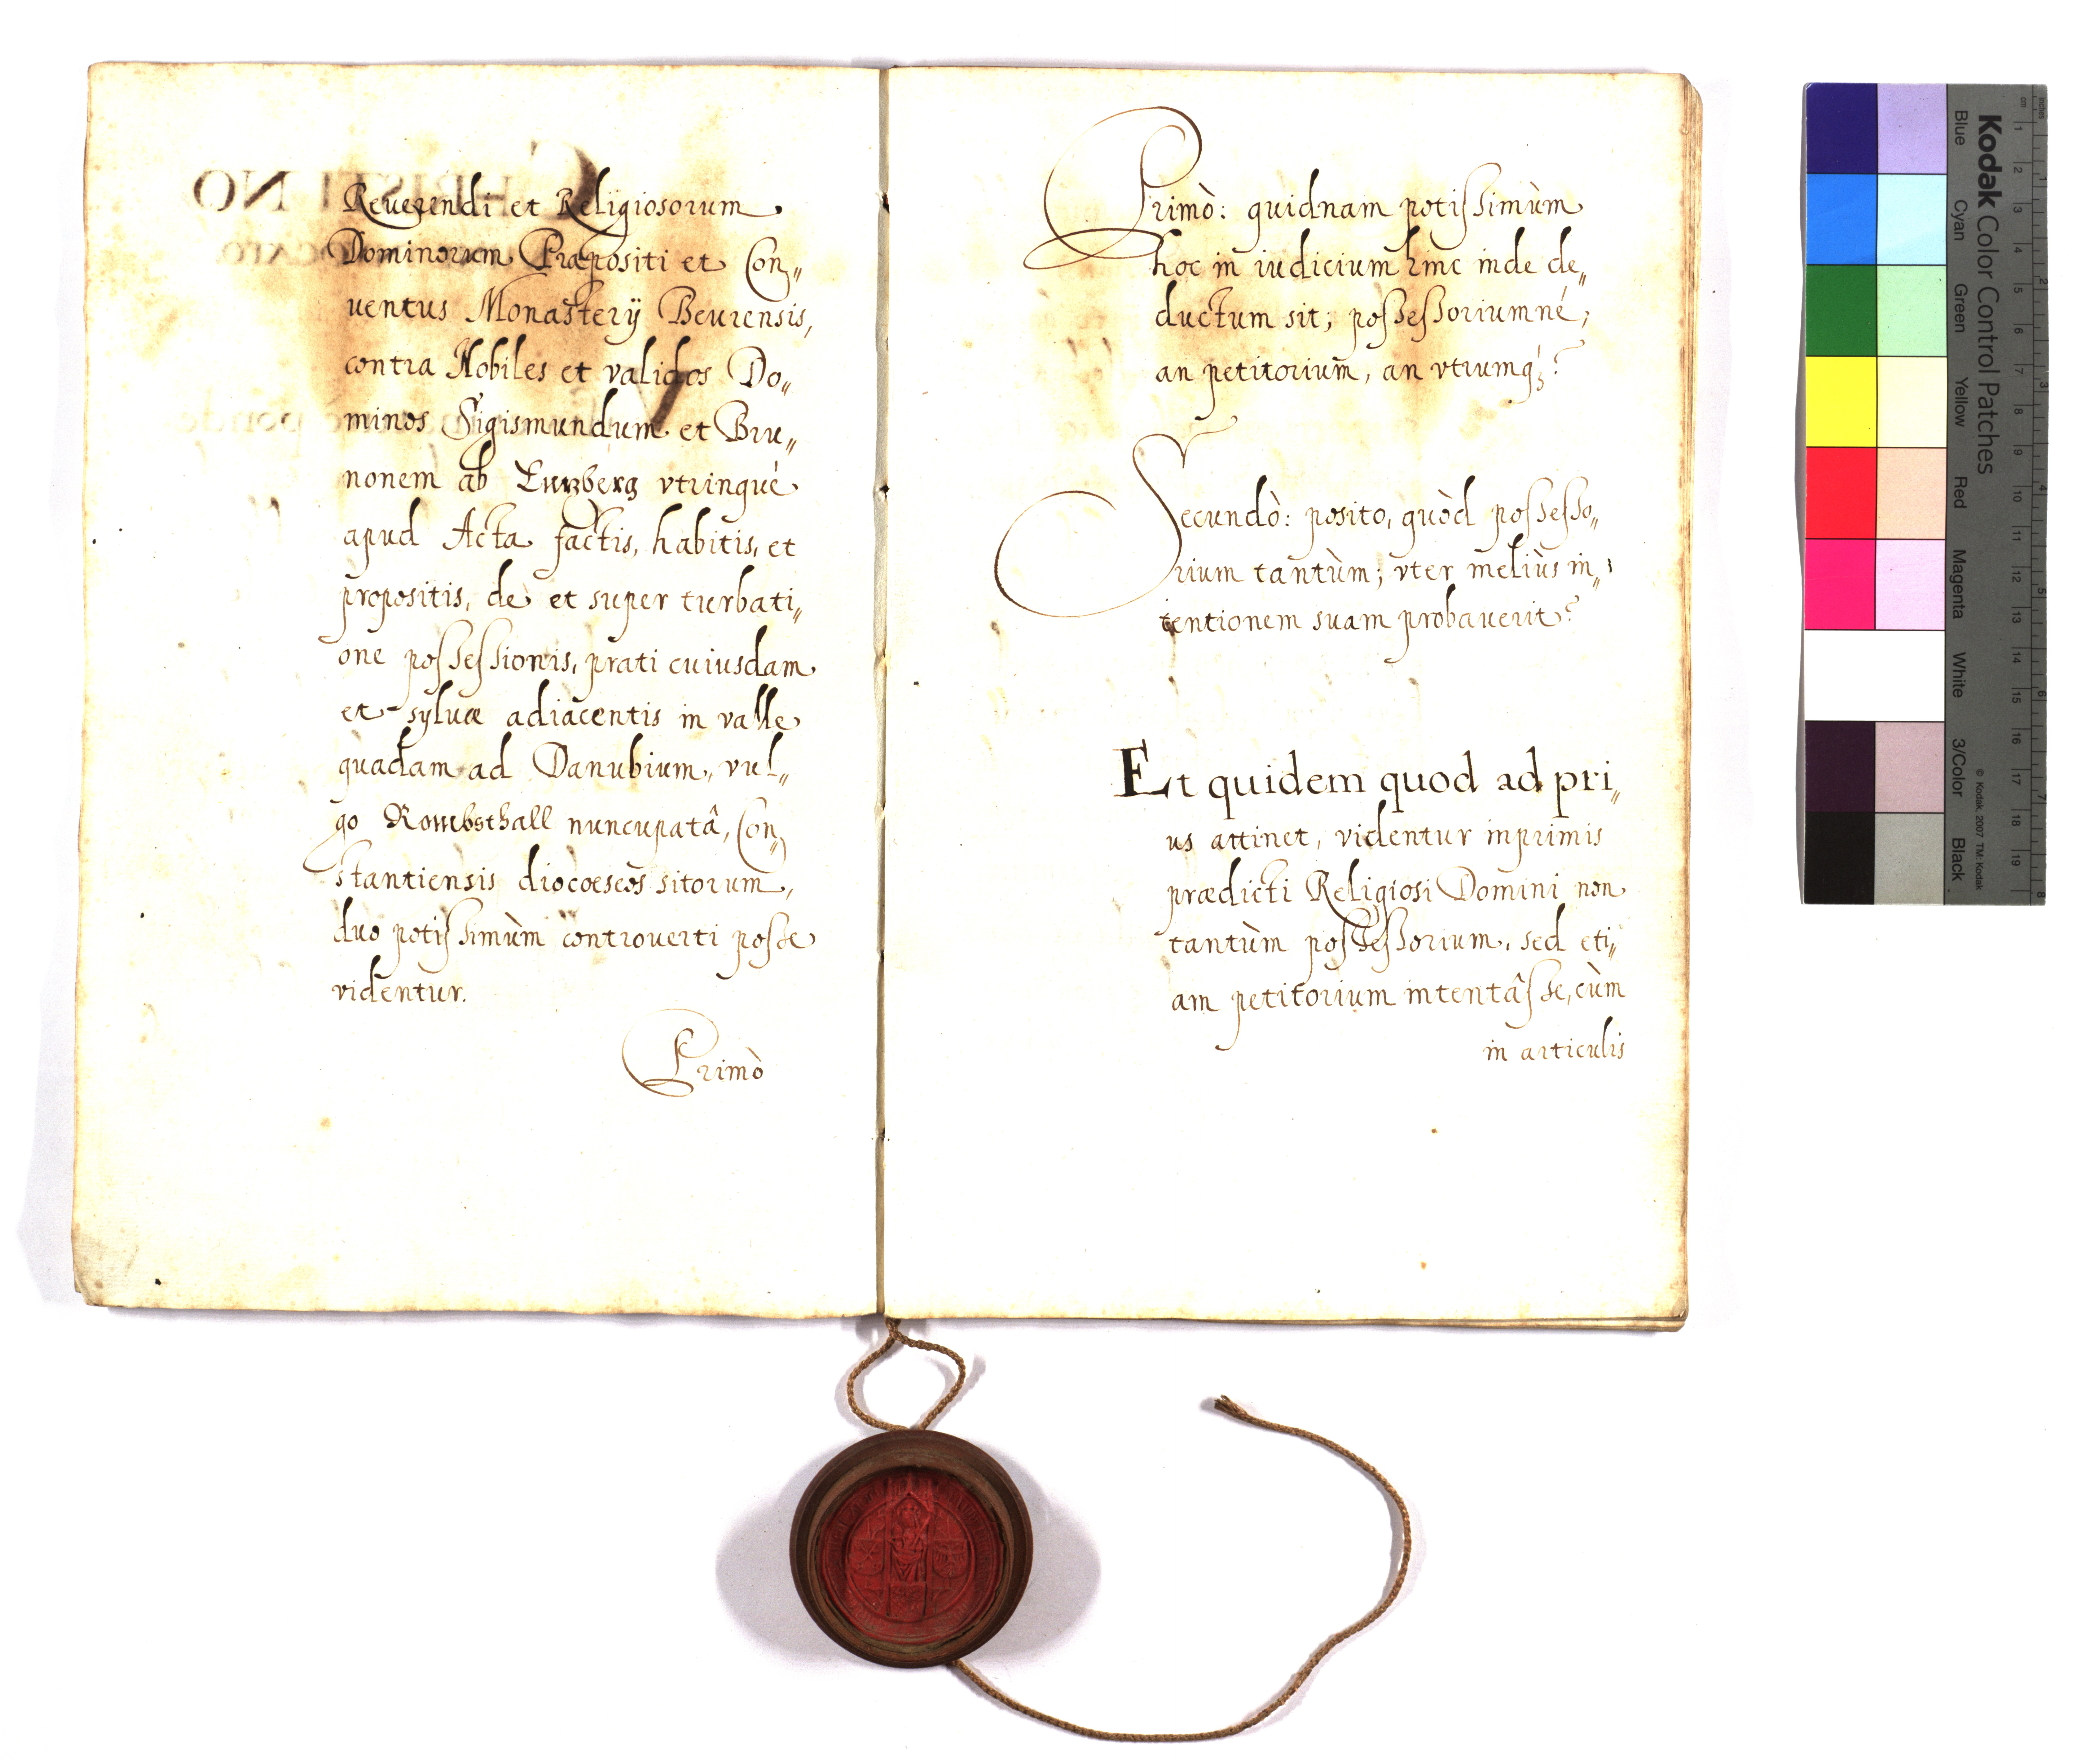 Reuerendi et Religiosorum
Dominorum Præpositi et Con„
uentus Monasterÿ Beurensis,
contra Nobiles et validos Do„
minos Sigismundum et Bru„
nonem ab Enzberg vtrinque
apud Acta factis, habitis, et
propositis, de et super turbati„
one possessionis, prati cuiusdam
et syluæ adiacentis in valle
quadam ad Danubium, vul„
go nuncupatâ, Con„
stantiensis diocoeseos sitorum,
duo potissimùm controuerti posse
videntur.
Primò
Primò: quidnam potissimùm
hoc in iudicium hinc inde de„
ductum sit; possessoriumné;
an petitorium, an vtrumq́;?
Secundò: posito, quòd possesso„
rium tantùm; vter meliùs in„
tentionem suam probauerit?
Et quidem quod ad pri„
us attinet, videntur inprimis
prædicti Religiosi Domini non
tantùm possessorium, sed eti„
am petitorium intentâsse, cùm
in articulis
Kodak Color Control Patches
Blue Cyan Green Yellow Red Magenta White 3/Color Black
© Kodak, 2007 TM: Kodak
cm 1 2 3 4 5 6 7 8 9 10 11 12 13 14 15 16 17 18 19
inches 1 2 3 4 5 6 7 8